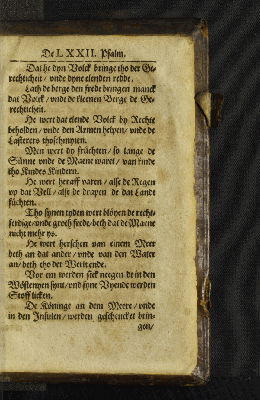 De LXXII. Psalm.
Dat he dyn Volck bringe tho der Ge-
rechticheit / vnde dyne elenden redde.
Lath de berge den frede bringen manck
dat Volck / vnde de kleenen Berge de Ge-
rechticheit.
He wert dat elende Volck by Rechte
beholden / vnde den Armen helpen / vnde de
Lasterers thoschmyten.
Men wert dy früchten / so lange de
Sünne vnde de Maene waret / van kinde
tho Kindes Kindern.
He wert heraff varen / alse de Regen
vp dat Vell / alse de drapen de dat Landt
füchten.
Tho synen tyden wert blöyen de recht-
ferdige / vnde groth frede / beth dat de Maene
nicht mehr ys.
He wert herschen van einem Meer
beth an dat ander / vnde van dem Water
an / beth tho der Werlt ende.
Vor em werden sick neegen de in den
Wöstenyen synt / vnd syne Vyende werden
Stoff licken.
De Köninge an dem Meere / vnde
in den Insulen / werden geschencket brin-
gen /